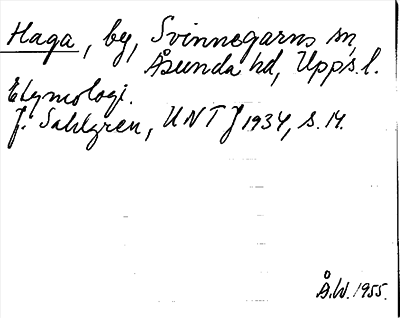 Haga, by, Svinnegarns sn,
Åsunda hd, Upps. l.
Etymologi.
J. Sahlgren, UNT J 1934, s. 14.
Å.W. 1955.